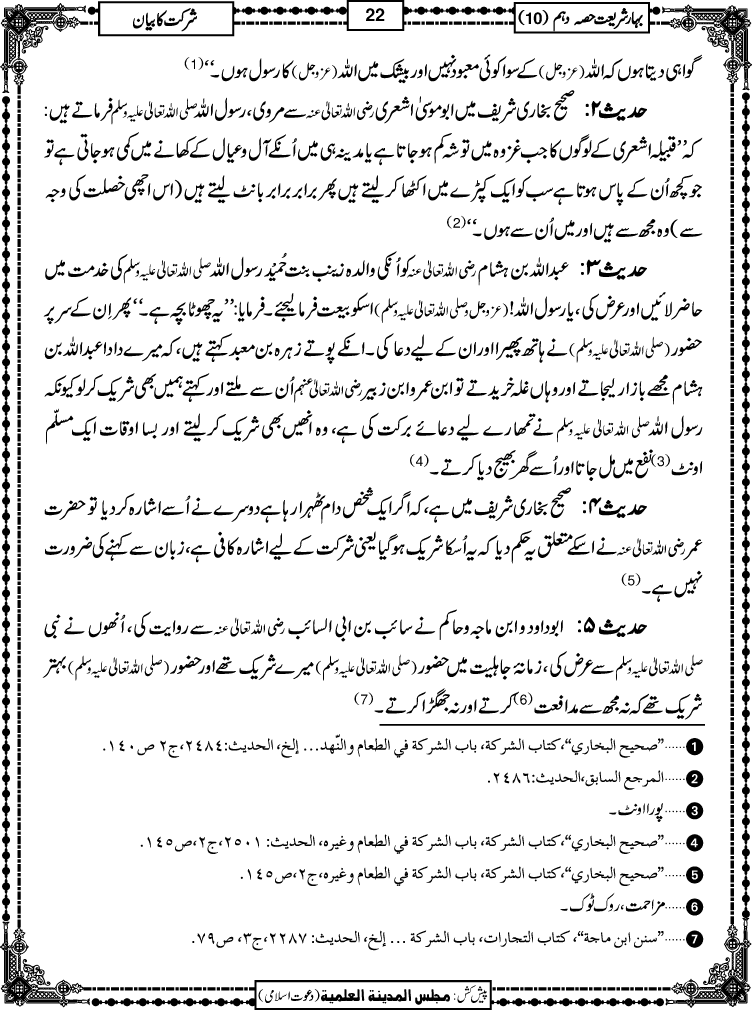 بہارِ شریعت حصہ دہم (10)
22
شرکت کا بیان
گواہی دیتا ہوں کہ اللہ (عزوجل) کے سوا کوئی معبود نہیں اور بیشک میں اللہ (عزوجل) کا رسول ہوں۔‘‘ (1)
حدیث ۲: صحیح بخاری شریف میں ابو موسیٰ اشعری رضی اللہ تعالیٰ عنہ سے مروی، رسول اللہ صلی اللہ تعالیٰ علیہ وسلم فرماتے ہیں:
کہ ’’قبیلہ اشعری کے لوگوں کا جب غزوہ میں توشہ کم ہوجاتا ہے یا مدینہ ہی میں اُنکے آل و عیال کے کھانے میں کمی ہوجاتی ہے تو
جو کچھ اُن کے پاس ہوتا ہے سب کو ایک کپڑے میں اکٹھا کر لیتے ہیں پھر برابر برابر بانٹ لیتے ہیں (اس اچھی خصلت کی وجہ
سے) وہ مجھ سے ہیں اور میں اُن سے ہوں۔‘‘ (2)
حدیث ۳: عبداللہ بن ہشام رضی اللہ تعالیٰ عنہ کو اُنکی والدہ زینب بنت حُمَیْد رسول اللہ صلی اللہ تعالیٰ علیہ وسلم کی خدمت میں
حاضر لائیں اور عرض کی، یا رسول اللہ! (عزوجل و صلی اللہ تعالیٰ علیہ وسلم) اسکو بیعت فرما لیجئے۔ فرمایا: ’’یہ چھوٹا بچہ ہے۔‘‘ پھر اِن کے سر پر
حضور (صلی اللہ تعالیٰ علیہ وسلم) نے ہاتھ پھیرا اور ان کے لیے دعا کی۔ انکے پوتے زہرہ بن معبد کہتے ہیں، کہ میرے دادا عبداللہ بن
ہشام مجھے بازار لیجاتے اور وہاں غلہ خریدتے تو ابن عمرو ابن زبیر رضی اللہ تعالیٰ عنہم اُن سے ملتے اور کہتے ہمیں بھی شریک کر لو کیونکہ
رسول اللہ صلی اللہ تعالیٰ علیہ وسلم نے تمھارے لیے دعائے برکت کی ہے، وہ انھیں بھی شریک کر لیتے اور بسا اوقات ایک مسلّم
اونٹ (3) نفع میں مل جاتا اور اُسے گھر بھیج دیا کرتے۔ (4)
حدیث ۴: صحیح بخاری شریف میں ہے، کہ اگر ایک شخص دام ٹھہرا رہا ہے دوسرے نے اُسے اشارہ کر دیا تو حضرت
عمر رضی اللہ تعالیٰ عنہ نے اسکے متعلق یہ حکم دیا کہ یہ اُسکا شریک ہوگیا یعنی شرکت کے لیے اشارہ کافی ہے، زبان سے کہنے کی ضرورت
نہیں ہے۔ (5)
حدیث ۵: ابوداود و ابن ماجہ و حاکم نے سائب بن ابی السائب رضی اللہ تعالیٰ عنہ سے روایت کی، اُنھوں نے نبی
صلی اللہ تعالیٰ علیہ وسلم سے عرض کی، زمانۂ جاہلیت میں حضور (صلی اللہ تعالیٰ علیہ وسلم) میرے شریک تھے اور حضور (صلی اللہ تعالیٰ علیہ وسلم) بہتر
شریک تھے کہ نہ مجھ سے مدافعت (6) کرتے اور نہ جھگڑا کرتے۔ (7)
1 ......”صحيح البخاري“، كتاب الشركة، باب الشركة في الطعام والنَّهد... إلخ، الحديث: ٢٤٨٤، ج٢ ص١٤٠.
2 ......المرجع السابق، الحديث: ٢٤٨٦.
3 ......پورا اونٹ۔
4 ......”صحيح البخاري“، كتاب الشركة، باب الشركة في الطعام وغيره، الحديث: ٢٥٠١، ج٢، ص١٤٥.
5 ......”صحيح البخاري“، كتاب الشركة، باب الشركة في الطعام وغيره، ج٢، ص١٤٥.
6 ......مزاحمت، روک ٹوک۔
7 ......”سنن ابن ماجة“، كتاب التجارات، باب الشركة ... إلخ، الحديث: ٢٢٨٧، ج٣، ص٧٩.
پیش کش: مجلس المدینة العلمیة (دعوت اسلامی)